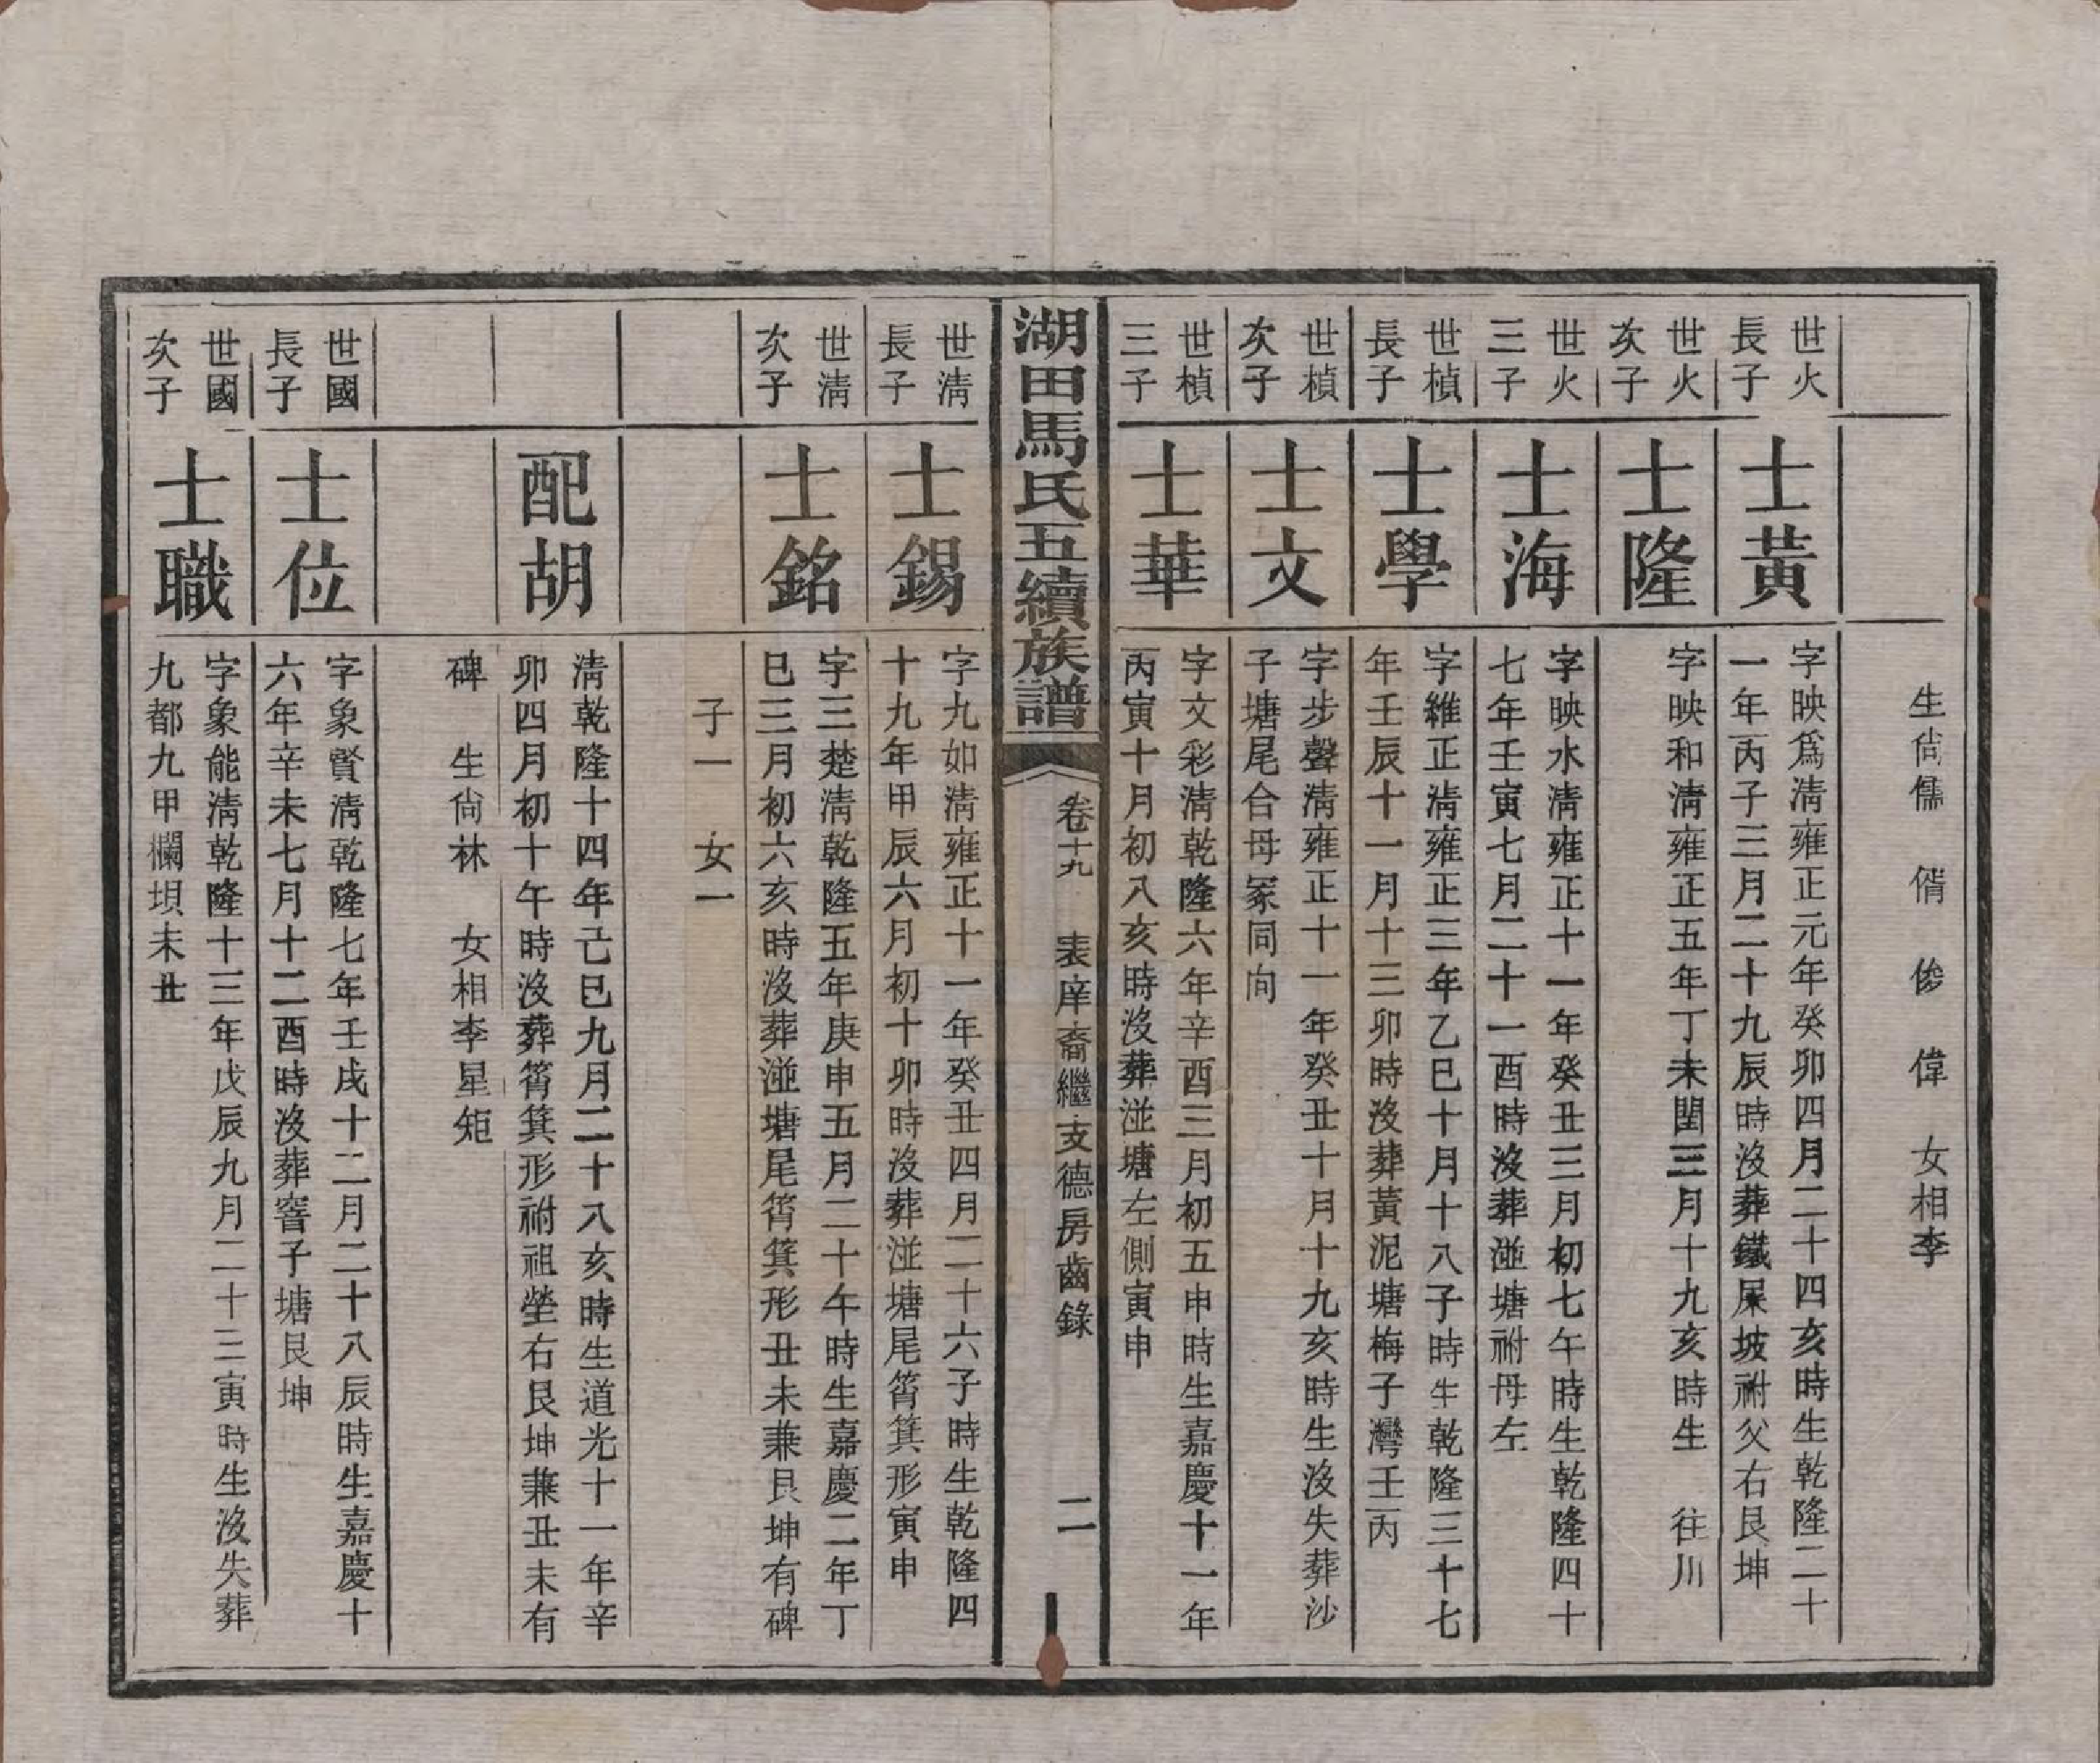 生尙儒　偦　偧　偉　女相李
世火
長子
士黃
字映爲淸雍正元年癸卯四月二十四亥時生乾隆二十
一年丙子三月二十九辰時沒葬鐵屎坡祔父右艮坤
世火
次子
士隆
字映和淸雍正五年丁未閏三月十九亥時生　往川
世火
三子
士海
字映水淸雍正十一年癸丑三月初七午時生乾隆四十
七年壬寅七月二十一酉時沒葬湴塘祔母左
世楨
長子
士學
字維正淸雍正三年乙巳十月十八子時生乾隆三十七
年壬辰十一月十三卯時沒葬黃泥塘梅子灣壬丙
世楨
次子
士文
字步聲淸雍正十一年癸丑十月十九亥時生沒失葬沙
子塘尾合母冢同向
世楨
三子
士華
字文彩淸乾隆六年辛酉三月初五申時生嘉慶十一年
丙寅十月初八亥時沒葬湴塘左側寅申
湖田馬氏五續族譜
卷十九　表庠裔繼支德房齒錄　二
世淸
長子
士錫
字九如淸雍正十一年癸丑四月二十六子時生乾隆四
十九年甲辰六月初十卯時沒葬湴塘尾筲箕形寅申
世淸
次子
士銘
字三楚淸乾隆五年庚申五月二十午時生嘉慶二年丁
巳三月初六亥時沒葬湴塘尾筲箕形丑未兼艮坤有碑
子一　女一
配胡
淸乾隆十四年己巳九月二十八亥時生道光十一年辛
卯四月初十午時沒葬筲箕形祔祖塋右艮坤兼丑未有
碑　生尙林　女相李星矩
世國
長子
士位
字象賢淸乾隆七年壬戌十二月二十八辰時生嘉慶十
六年辛未七月十二酉時沒葬窖子塘艮坤
世國
次子
士職
字象能淸乾隆十三年戊辰九月二十三寅時生沒失葬
九都九甲欄垻未丑